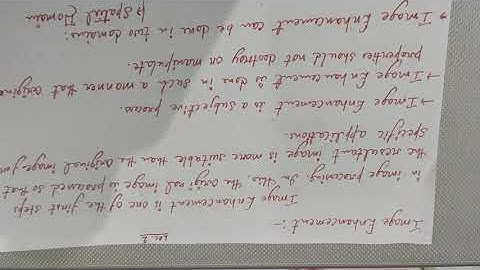 Image Enhancement :-
Image Enhancement is one of the first steps
in image processing. In this, the original image is processed so that
the resultant image is more suitable than the original image for
specific applications.
→ Image Enhancement is a subjective process.
→ Image Enhancement is done in such a manner that origina
properties should not destroy or manipulate.
→ Image Enhancement can be done in two domains:
Spatial Domain